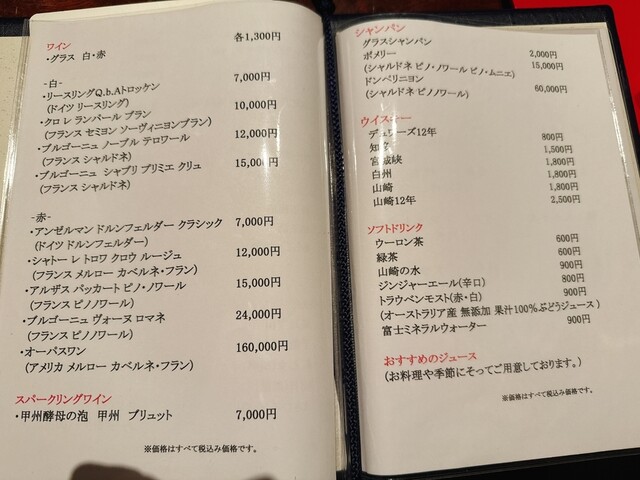 ワイン 各1,300円
・グラス 白・赤
-白-
・リースリングQ.b.Aトロッケン 7,000円
(ドイツ リースリング)
・クロ レ ランパール ブラン 10,000円
(フランス セミヨン ソーヴィニヨンブラン)
・ブルゴーニュ ノーブル テロワール 12,000円
(フランス シャルドネ)
・ブルゴーニュ シャブリ プリミエ クリュ 15,000円
(フランス シャルドネ)
-赤-
・アンゼルマン ドルンフェルダー クラシック 7,000円
(ドイツ ドルンフェルダー)
・シャトー レ トロワ クロウ ルージュ 12,000円
(フランス メルロー カベルネ・フラン)
・アルザス バッカート ピノ・ノワール 15,000円
(フランス ピノノワール)
・ブルゴーニュ ヴォーヌ ロマネ 24,000円
(フランス ピノノワール)
・オーパスワン 160,000円
(アメリカ メルロー カベルネ・フラン)
スパークリングワイン
・甲州酵母の泡 甲州 ブリュット 7,000円
※価格はすべて税込み価格です。
シャンパン
グラスシャンパン 2,000円
ポメリー 15,000円
(シャルドネ ピノ・ノワール ピノ・ムニエ)
ドンペリニヨン 60,000円
(シャルドネ ピノノワール)
ウイスキー
デュワーズ12年 800円
知多 1,500円
宮城峡 1,800円
白州 1,800円
山崎 1,800円
山崎12年 2,500円
ソフトドリンク
ウーロン茶 600円
緑茶 600円
山崎の水 900円
ジンジャーエール(辛口) 800円
トラウベンモスト(赤・白) 900円
(オーストラリア産 無添加 果汁100%ぶどうジュース)
富士ミネラルウォーター 900円
おすすめのジュース
(お料理や季節にそってご用意しております。)
※価格はすべて税込み価格です。